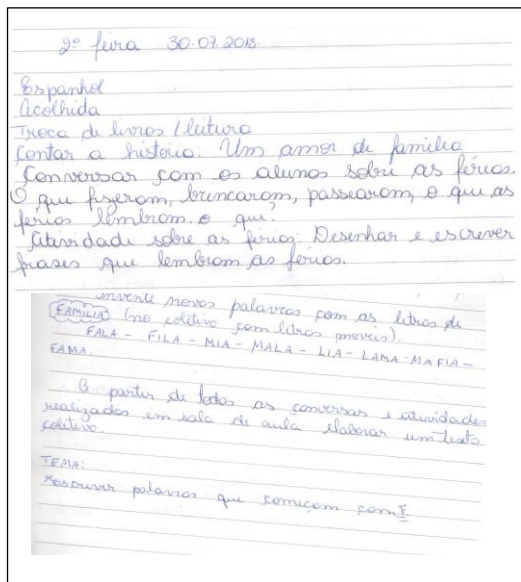 2ª feira 30.07.2018.
Espanhol
Acolhida
Troca de livros / leitura
Contar a história: Um amor de família
Conversar com os alunos sobre as férias.
O que fizeram, brincaram, passearam, o que as
férias lembram o que?
Atividade sobre as férias: Desenhar e escrever
frases que lembram as férias.
invente novas palavras com as letras de
FAMÍLIA (no coletivo com letras móveis).
FALA - FILA - MIA - MALA - LIA - LAMA - MAFIA -
FAMA.
A partir de todas as conversas e atividades
realizadas em sala de aula elaborar um texto
coletivo.
TEMA:
escrever palavras que começam com F